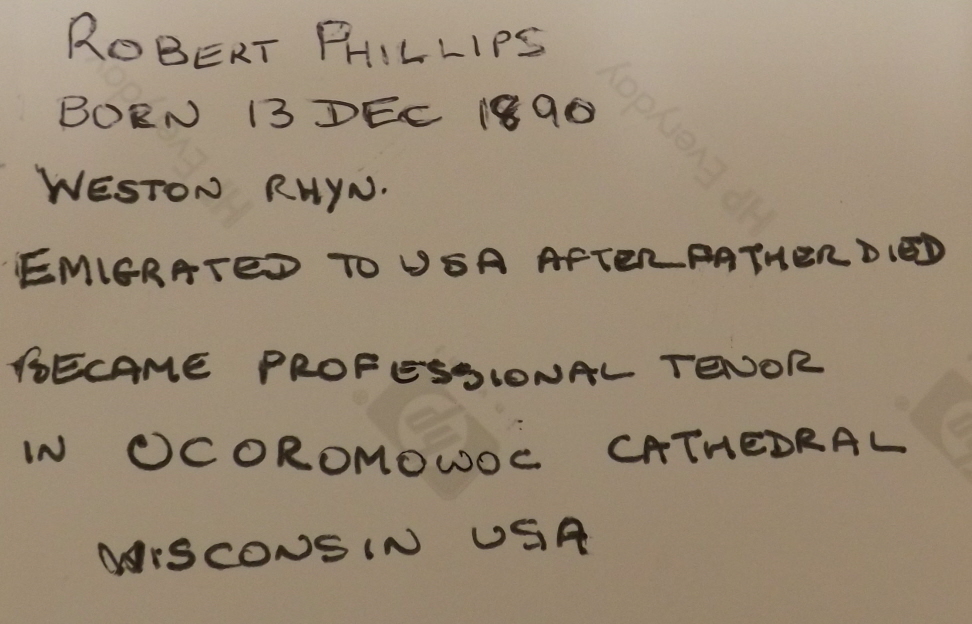 ROBERT PHILLIPS
BORN 13 DEC 1890
WESTON RHYN.
EMIGRATED TO USA AFTER FATHER DIED
BECAME PROFESSIONAL TENOR
IN OCOROMOWOC CATHEDRAL
WISCONSIN USA
HP Everyday
HP Everyday
hp